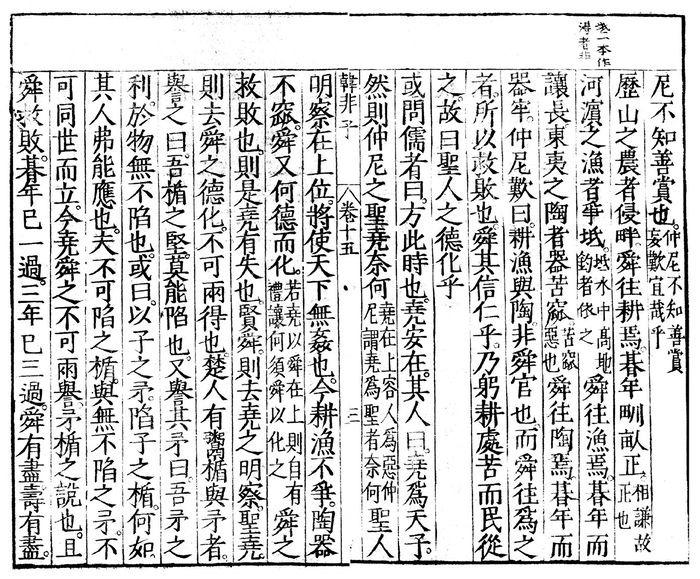 尼不知善賞也。仲尼不知善賞妄歎宜哉乎
歷山之農者侵畔舜往耕焉。朞年甽畝正。相謙故正也
河濱之漁者爭坻。坻水中高地釣者依之舜往漁焉。朞年而
讓長東夷之陶者器苦窳。苦窳惡也舜往陶焉。朞年而
器牢。仲尼歎曰。耕漁與陶非舜官也。而舜往爲之
者。所以救敗也。舜其信仁乎。乃躬耕處苦而民從
之。故曰聖人之德化乎
或問儒者曰。方此時也。堯安在。其人曰。堯爲天子。
然則仲尼之聖堯奈何堯在上容人爲惡仲尼謂堯爲聖者奈何聖人
韓非子 卷十五 三
明察在上位。將使天下無姦也。今耕漁不爭。陶器
不窳。舜又何德而化。若堯以舜在上則自有禮讓何須舜以化之舜之
救敗也。則是堯有失也。賢舜。則去堯之明察。聖堯
則去舜之德化。不可兩得也。楚人有鬻楯與矛者。
譽之曰。吾楯之堅。莫能陷也。又譽其矛曰。吾矛之
利。於物無不陷也。或曰。以子之矛。陷子之楯。何如
其人弗能應也。夫不可陷之楯。與無不陷之矛。不
可同世而立。今堯舜之不可兩譽。矛楯之說也。且
舜救敗。朞年已一過。三年已三過。舜有盡。壽有盡。